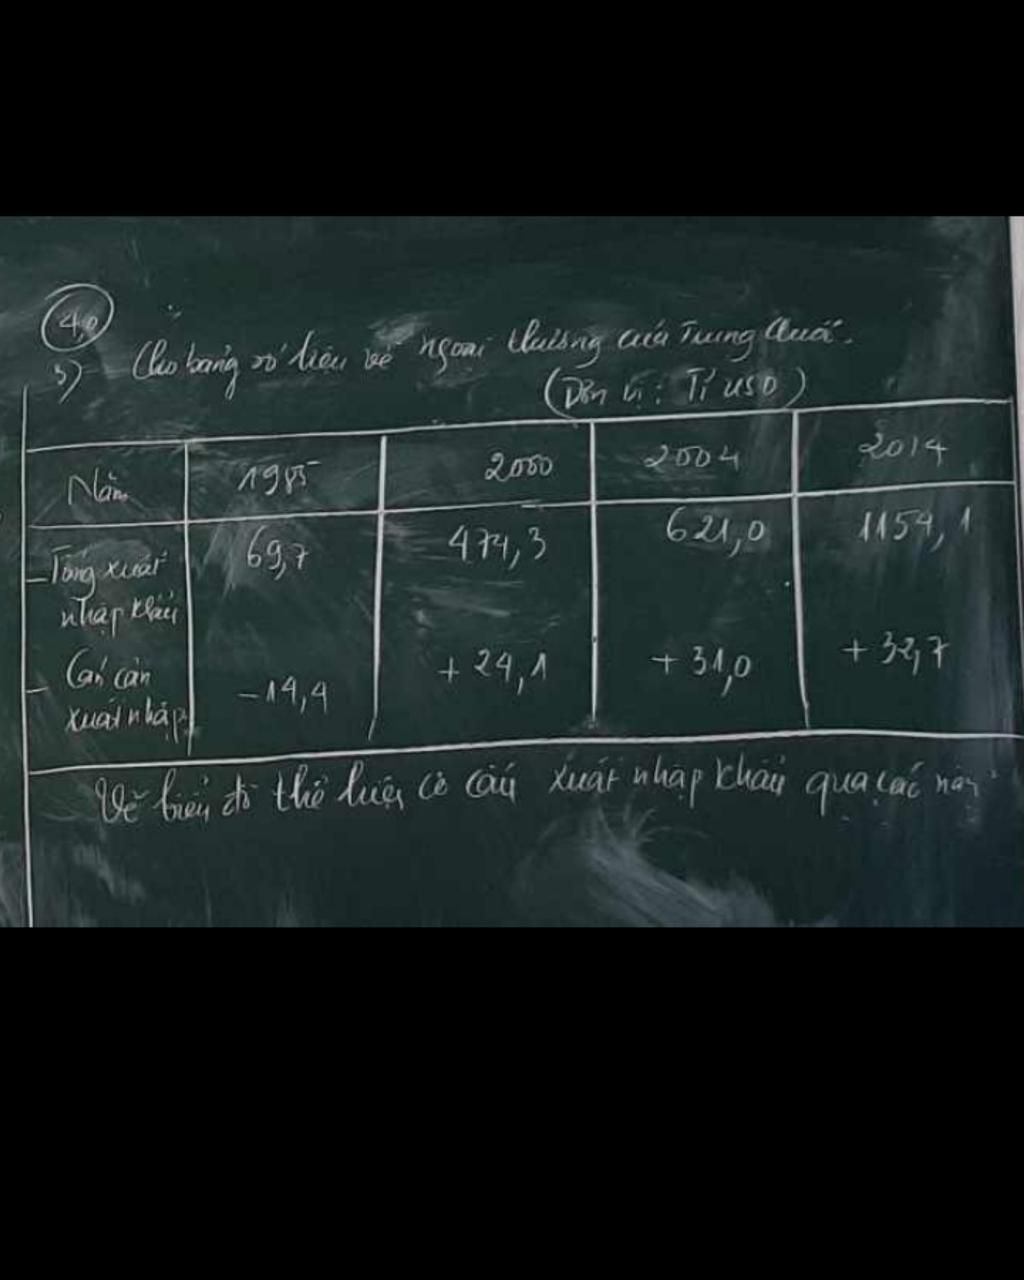 4,0
3) Cho bảng số liệu về ngoại thương của Trung Quốc.
(Đơn vị: Tỉ USD)
Năm 1985 2000 2004 2014
- Tổng xuất nhập khẩu 69,7 474,3 621,0 1154,1
- Cán cân xuất nhập -14,4 +24,1 +31,0 +32,7
Vẽ biểu đồ thể hiện cơ cấu xuất nhập khẩu qua các năm